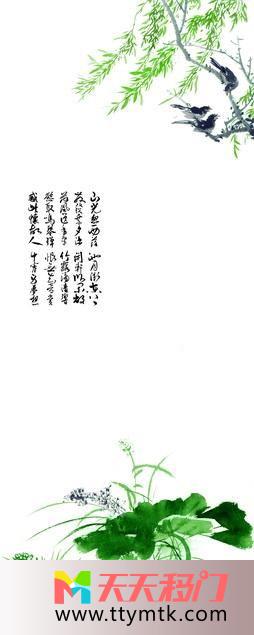 山光忽西落 池月渐东上
散发乘夕凉 开轩卧闲敞
荷风送香气 竹露滴清响
欲取鸣琴弹 恨无知音赏
感此怀故人 中宵劳梦想
天天移门
www.ttymtk.com